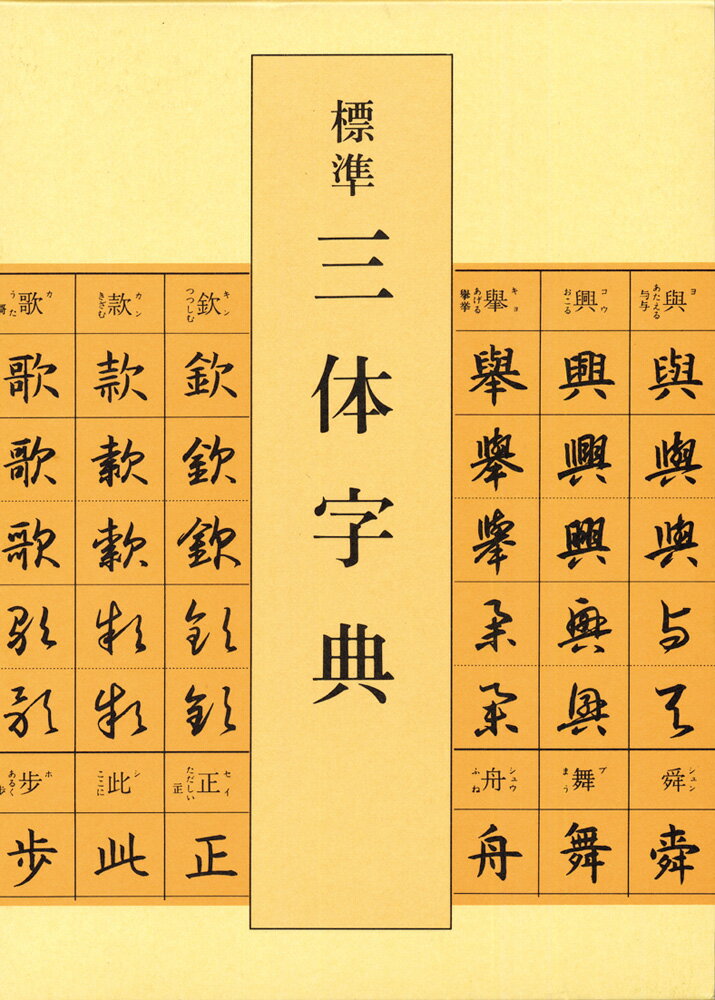 標準
三体字典
與 ヨ あたえる 与与
與
與
與
与
興 コウ おこる
興
興
興
興
興
舉 キョ あげる 擧挙
舉
舉
舉
欽 キン つつしむ
欽
欽
欽
欽
欽
款 カン きざむ
款
款
款
款
款
歌 カ うた
歌
歌
歌
歌
歌
舜 シュン
舜
舞 ブ まう
舞
舟 シュウ ふね
舟
正 セイ ただしい
正
此 シ ここに
此
歩 ホ あるく
歩